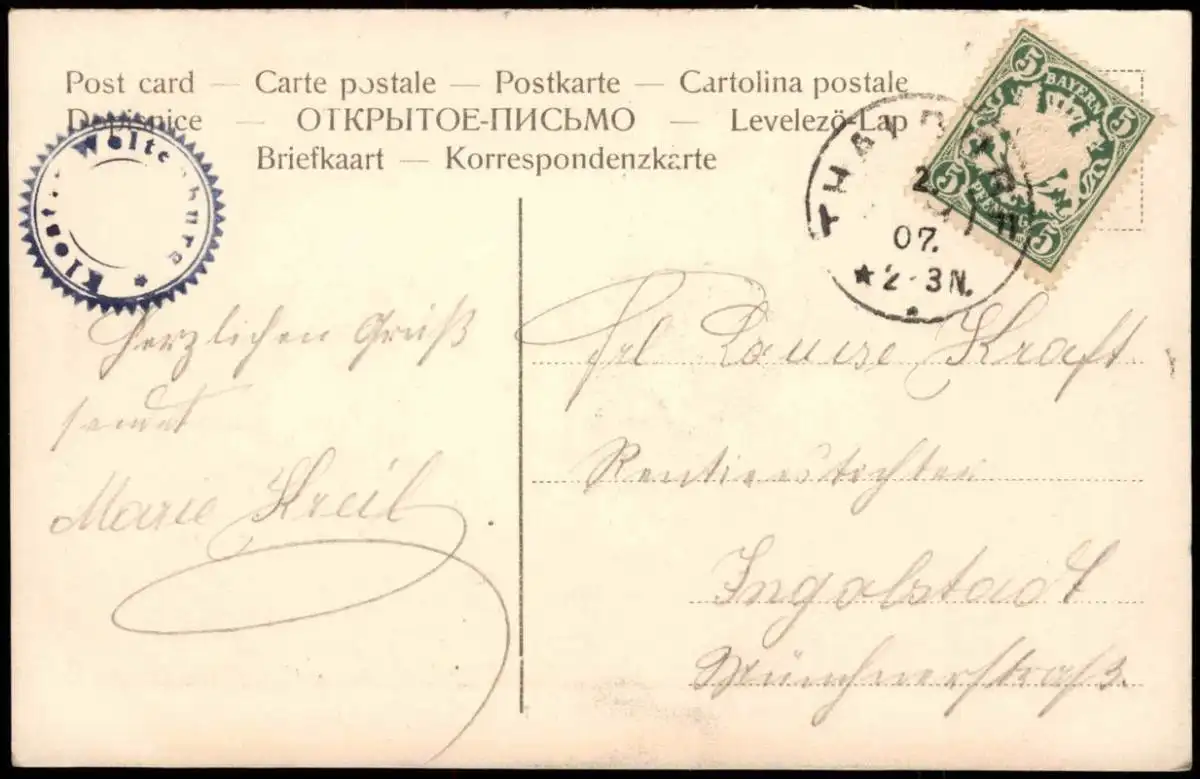 Post card — Carte postale — Postkarte — Cartolina postale
Dopisnice — ОТКРЫТОЕ-ПИСЬМО — Levelező-Lap
Briefkaart — Korrespondenzkarte
Kloster Weltenburg *
5 5
BAYERN
PFENNIG
5 5
07.
★ 2-3 N.
Herzlichen Gruß
sendet
Marie Kreil
Frl Louise Kraft
Rentierstochter
Ingolstadt
Münchnerstraß